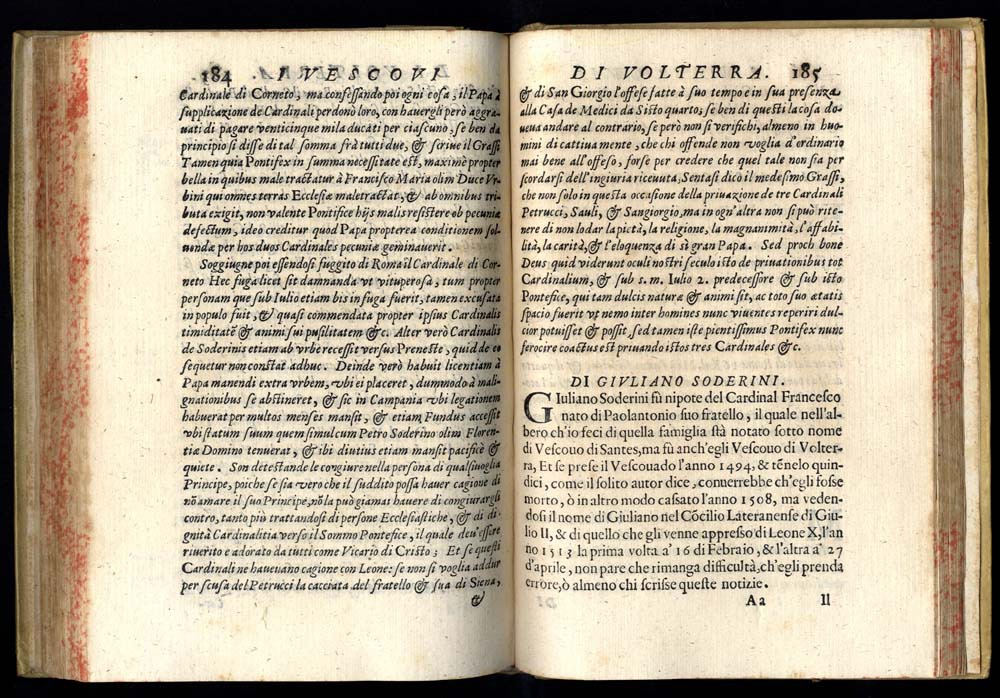 184 I VESCOVI
Cardinale di Corneto, ma confessando poi ogni cosa, il Papa à
supplicazione de Cardinali perdonò loro, con hauergli però aggra-
uati di pagare venticinque mila ducati per ciascuno, se ben da
principio si disse di tal somma frà tutti due, & scriue il Grassi
Tamen quia Pontifex in summa necessitate est, maximè propter
bella in quibus male tractatur à Francisco Maria olim Duce Vr-
bini qui omnes terras Ecclesiæ maletractat, & ab omnibus tri-
buta exigit, non valente Pontifice hijs malis resistere ob pecuniæ
defectum, ideo creditur quod Papa propterea conditionem sol-
uendæ per hos duos Cardinales pecuniæ geminauerit.
Soggiugne poi essendosi fuggito di Roma il Cardinale di Cor-
neto Hec fuga licet sit damnanda vt vituperosa, tum propter
personam que sub Iulio etiam bis in fuga fuerit, tamen excusata
in populo fuit, & quasi commendata propter ipsius Cardinalis
timiditatē & animi sui pusilitatem &c. Alter verò Cardinalis
de Soderinis etiam ab vrbe recessit versus Preneste, quid de eo
sequetur non constat adhuc. Deinde verò habuit licentiam à
Papa manendi extra vrbem, vbi ei placeret, dummodò à mali-
gnationibus se abstineret, & sic in Campania vbi legationem
habuerat per multos menses mansit, & etiam Fundus accessit
vbi statum suum quem simul cum Petro Soderino olim Floren-
tiæ Domino tenuerat, & ibi diutius etiam mansit pacificè &
quiete. Son detestande le congiure nella persona di qualsiuoglia
Principe, poiche se sia vero che il suddito possa hauer cagione di
nō amare il suo Principe, nō la può giamai hauere di congiurargli
contro, tanto più trattandosi di persone Ecclesiastiche, & di di-
gnità Cardinalitia verso il Sommo Pontefice, il quale deu'essere
riuerito e adorato da tutti come Vicario di Cristo; Et se questi
Cardinali ne haueuano cagione con Leone: se non si voglia addur
per scusa del Petrucci la cacciata del fratello & sua di Siena,
&
DI VOLTERRA. 185
& di San Giorgio l'offese fatte à suo tempo e in sua presenza
alla Casa de Medici da Sisto quarto; se ben di questi la cosa do-
ueua andare al contrario, se però non si verifichi, almeno in huo-
mini di cattiua mente, che chi offende non voglia d'ordinario
mai bene all'offeso, forse per credere che quel tale non sia per
scordarsi dell'ingiuria riceuuta, Sentasi dico il medesimo Grassi,
che non solo in questa occasione della priuazione de tre Cardinali
Petrucci, Sauli, & Sangiorgio, ma in ogn'altra non si può rite-
nere di non lodar la pietà, la religione, la magnanimità, l'affabi-
lità, la carità, & l'eloquenza di sì gran Papa. Sed proch bone
Deus quid viderunt oculi nostri seculo isto de priuationibus tot
Cardinalium, & sub s. m. Iulio 2. predecessore & sub isto
Pontefice, qui tam dulcis naturæ & animi sit, ac toto suo ætatis
spacio fuerit vt nemo inter homines nunc viuentes reperiri dul-
cior potuisset & possit, sed tamen iste pientissimus Pontifex nunc
ferocire coactus est priuando istos tres Cardinales &c.
DI GIVLIANO SODERINI.
GIuliano Soderini fù nipote del Cardinal Francesco
nato di Paolantonio suo fratello, il quale nell'al-
bero ch'io feci di quella famiglia stà notato sotto nome
di Vescouo di Santes, ma fù anch'egli Vescouo di Volter-
ra, Et se prese il Vescouado l'anno 1494, & tēnelo quin-
dici, come il solito autor dice, conuerrebbe ch'egli fosse
morto, ò in altro modo cassato l'anno 1508, ma veden-
dosi il nome di Giuliano nel Cōcilio Lateranense di Giu-
lio II, & di quello che gli venne appresso di Leone X, l'an
no 1513 la prima volta a' 16 di Febraio, & l'altra a' 27
d'aprile, non pare che rimanga difficultà, ch'egli prenda
errore, ò almeno chi scrisse queste notizie.
Aa Il